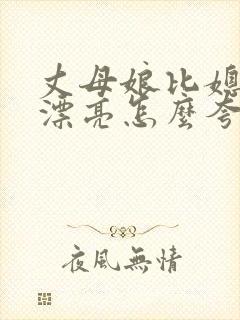 丈母娘比媳
漂亮怎麼夸
夜風無情